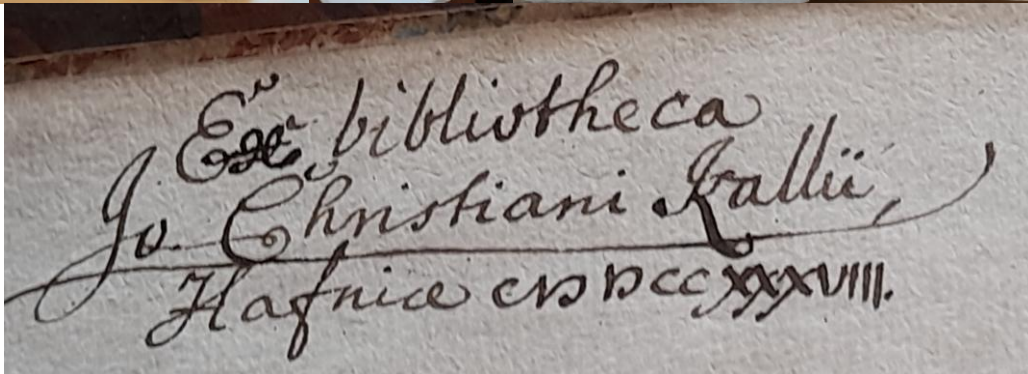 Ex bibliotheca
Jo. Christiani Kallii,
Hafniæ CIƆ IƆ CC XXXVIII.